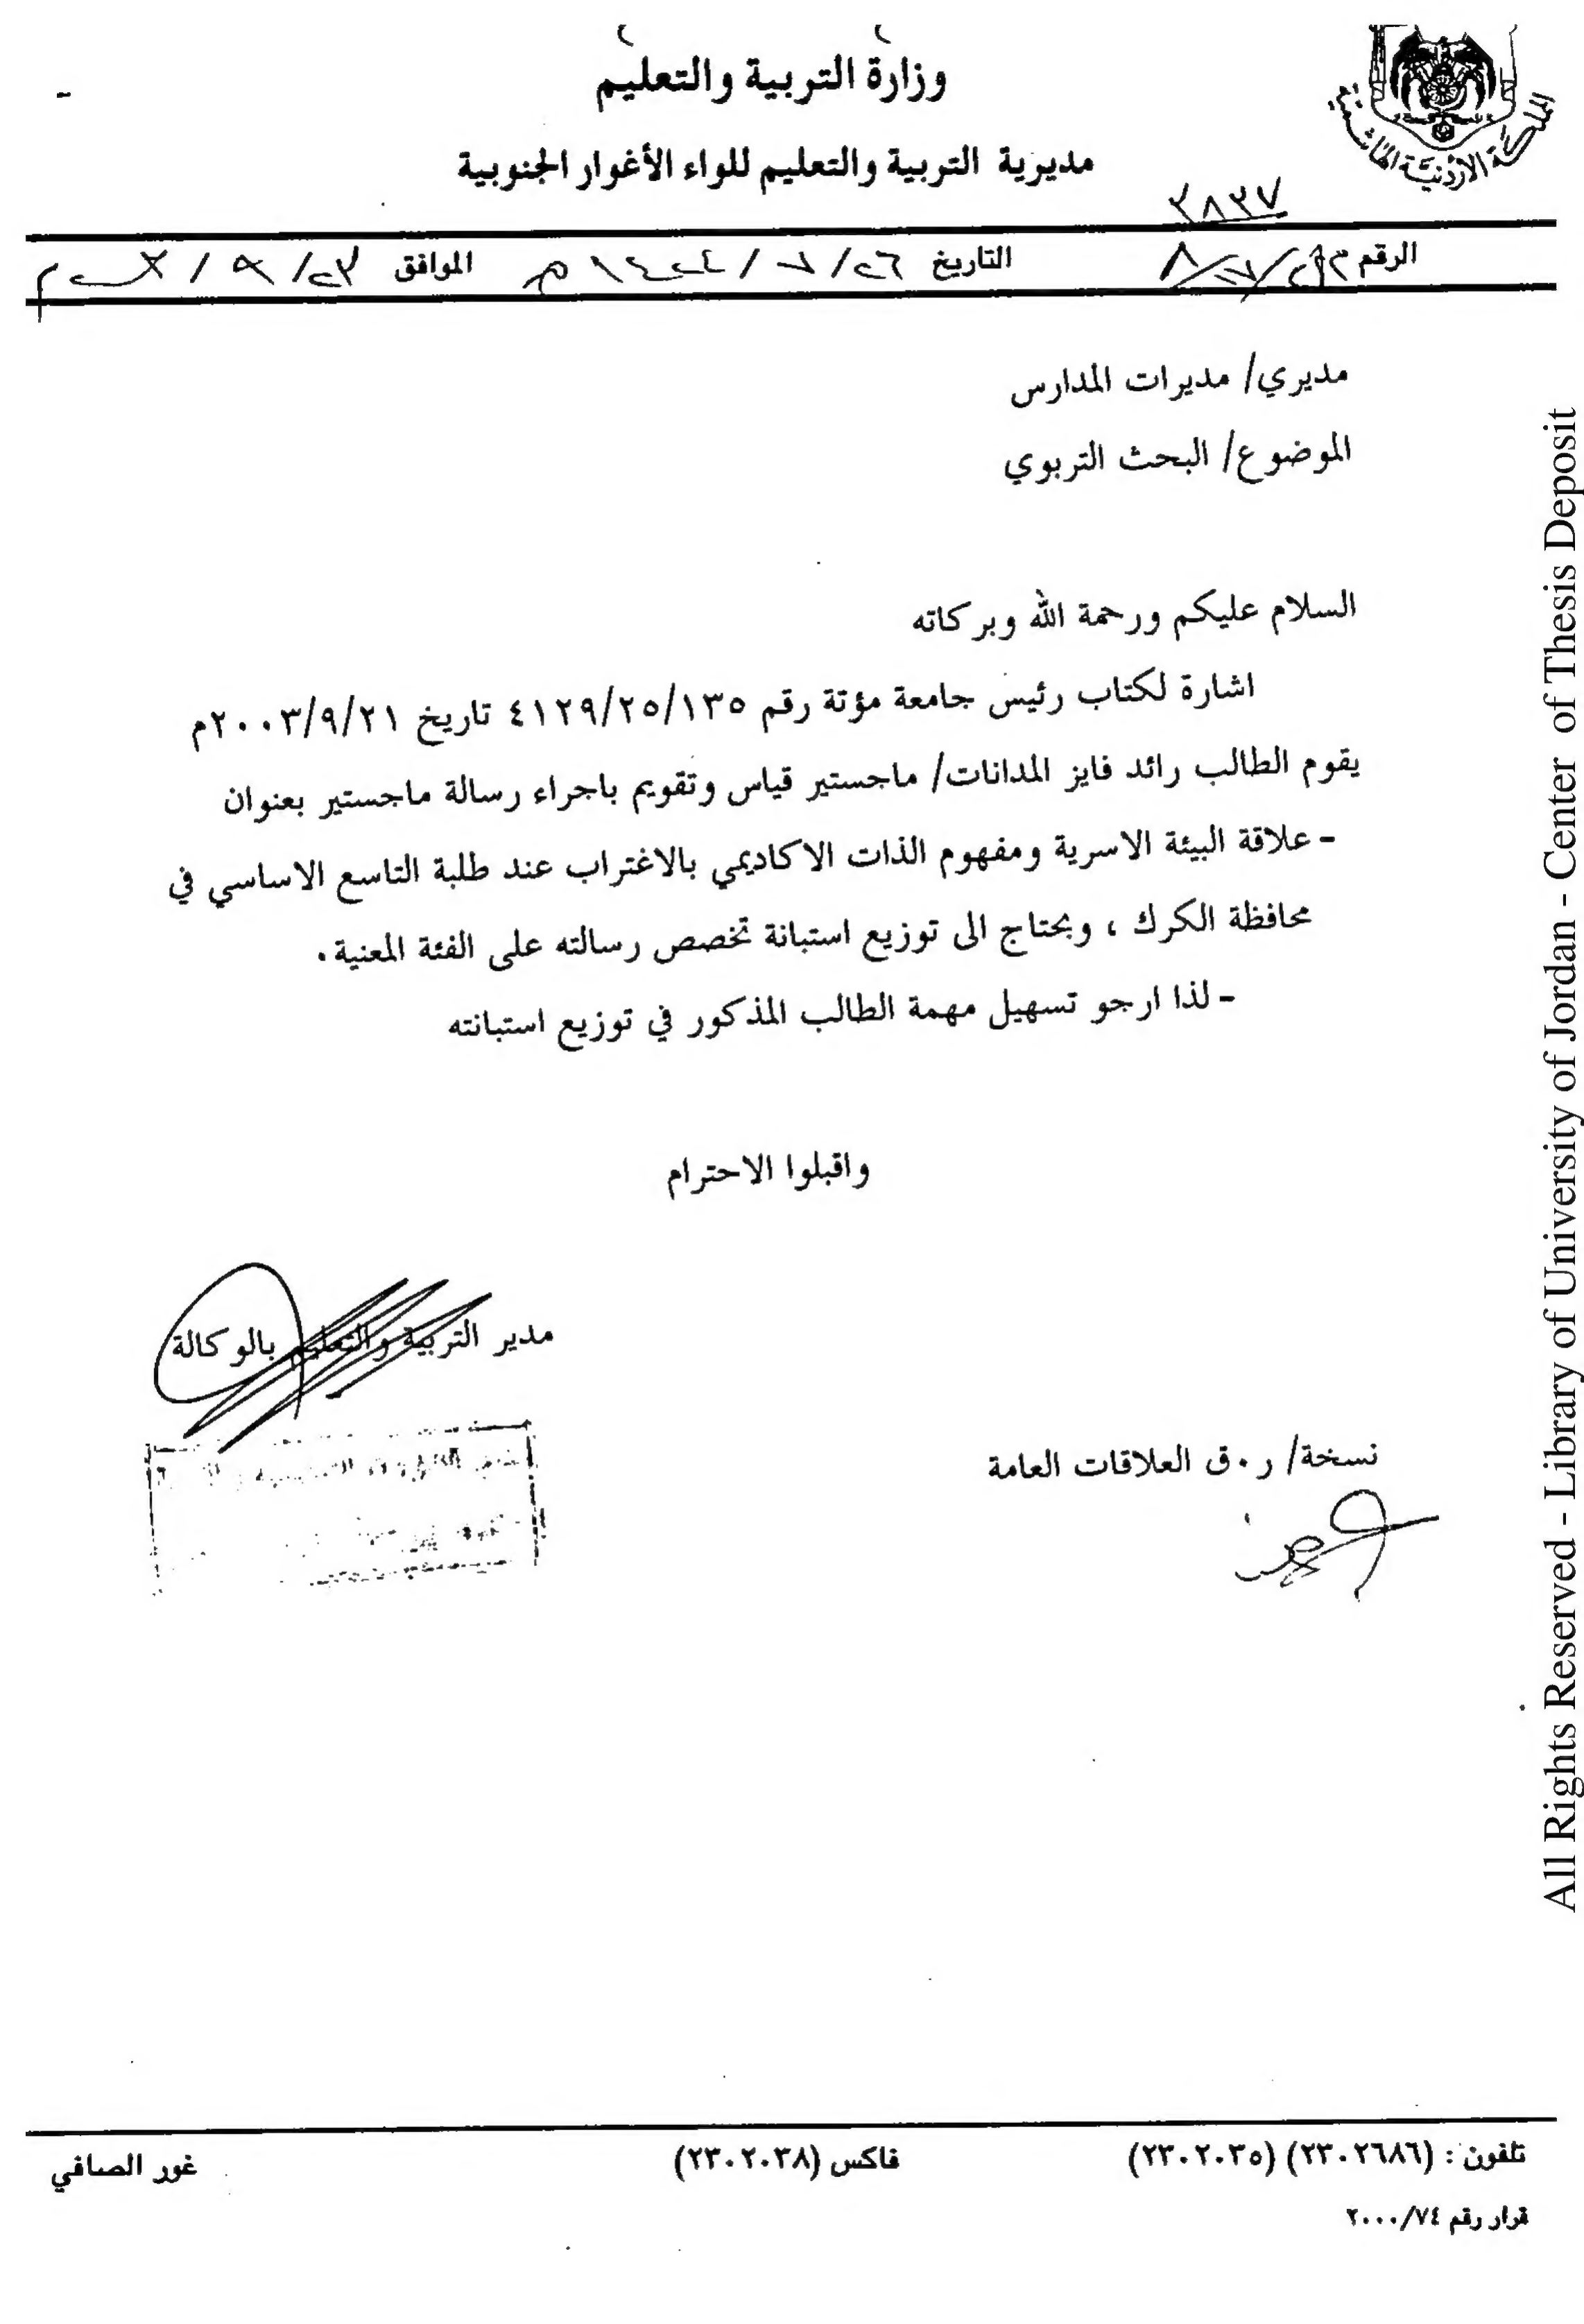 وزارة التربية والتعليم
المملكة الأردنية الهاشمية
مديرية التربية والتعليم للواء الأغوار الجنوبية
الرقم
التاريخ ٢٦/٧/١٤٢٤هـ الموافق
مديري/ مديرات المدارس
الموضوع/ البحث التربوي
السلام عليكم ورحمة الله وبركاته
اشارة لكتاب رئيس جامعة مؤتة رقم ٤١٢٩/٢٥/١٣٥ تاريخ ٢٠٠٣/٩/٢١م
يقوم الطالب رائد فايز المدانات/ ماجستير قياس وتقويم باجراء رسالة ماجستير بعنوان
- علاقة البيئة الاسرية ومفهوم الذات الاكاديمي بالاغتراب عند طلبة التاسع الاساسي في
محافظة الكرك ، ويحتاج الى توزيع استبانة تخصص رسالته على الفئة المعنية .
- لذا ارجو تسهيل مهمة الطالب المذكور في توزيع استبانته
واقبلوا الاحترام
مدير التربية والتعليم بالوكالة
نسخة/ ر.ق العلاقات العامة
تلفون : (٢٣٠٢٦٨٦) (٢٣٠٢٠٣٥) فاكس (٢٣٠٢٠٣٨) غور الصافي
قرار رقم ٢٠٠٠/٧٤
All Rights Reserved - Library of University of Jordan - Center of Thesis Deposit